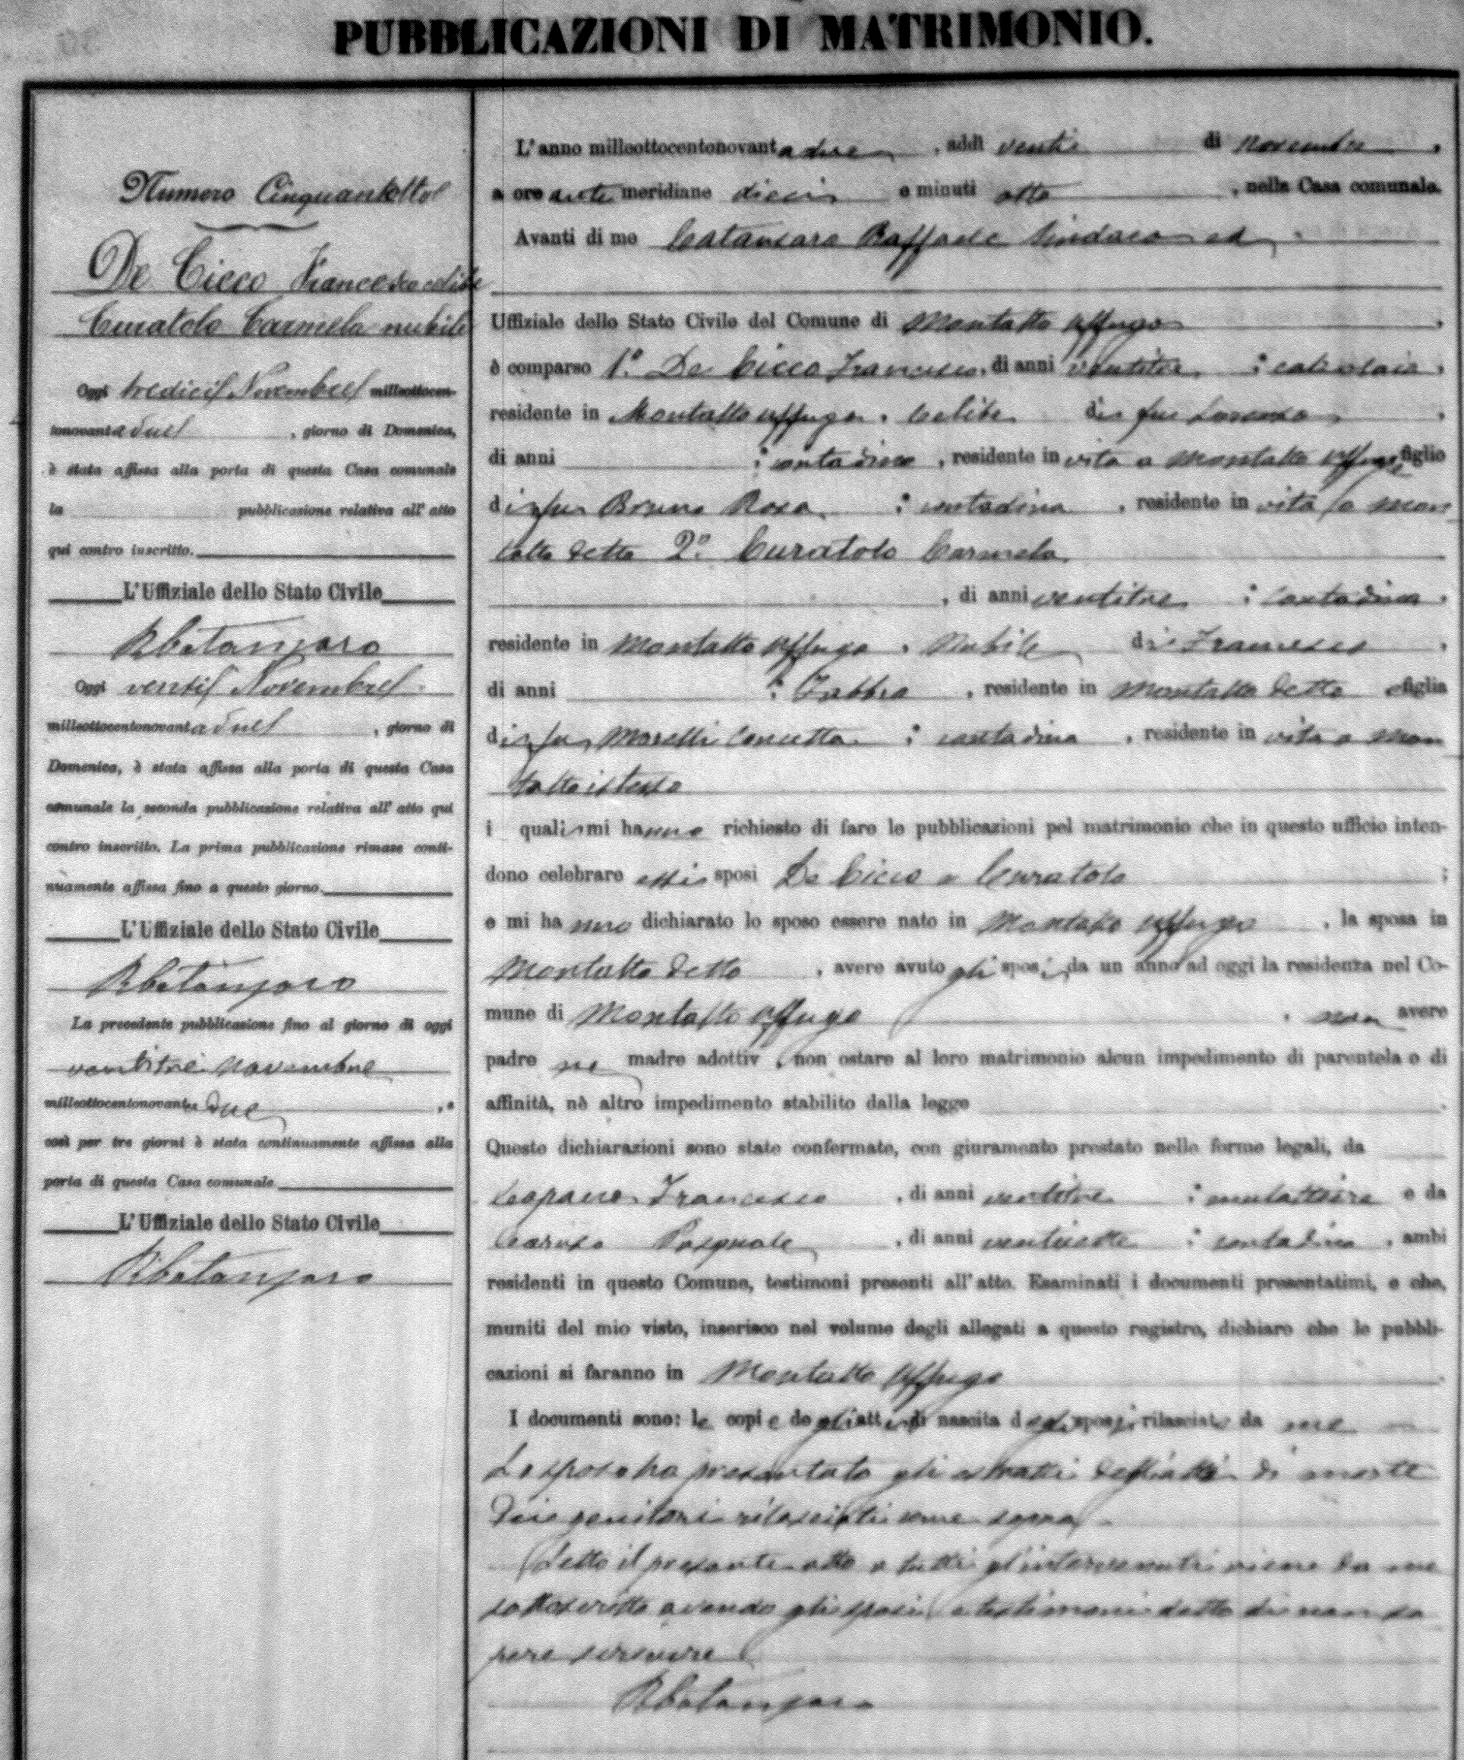 PUBBLICAZIONI DI MATRIMONIO.
Numero Cinquantotto
De Cicco Francesco celibe
Curatolo Carmela nubile
Oggi tredici Novembre milleottocen-
tonovantadue, giorno di Domenica,
è stata affissa alla porta di questa Casa comunale
la pubblicazione relativa all'atto
qui contro inscritto.
L'Uffiziale dello Stato Civile
RCatanzaro
Oggi venti Novembre
milleottocentonovantadue, giorno di
Domenica, è stata affissa alla porta di questa Casa
comunale la seconda pubblicazione relativa all'atto qui
contro inscritto. La prima pubblicazione rimase conti-
nuamente affissa fino a questo giorno.
L'Uffiziale dello Stato Civile
RCatanzaro
La precedente pubblicazione fino al giorno di oggi
ventitre novembre
milleottocentonovantadue, e
così per tre giorni è stata continuamente affissa alla
porta di questa Casa comunale.
L'Uffiziale dello Stato Civile
RCatanzaro
L'anno milleottocentonovantadue, addì venti di novembre,
a ore ante meridiane dieci e minuti otto, nella Casa comunale.
Avanti di me Catanzaro Raffaele Sindaco ed
Uffiziale dello Stato Civile del Comune di Montalto Uffugo,
è comparso 1.° De Cicco Francesco, di anni ventitre, calzolaio,
residente in Montalto Uffugo, celibe di fu Lorenzo,
di anni, contadino, residente in vita a Montalto Uffugo e figlio
di fu Bruno Rosa, contadina, residente in vita a Mon
talto detto 2.° Curatolo Carmela
, di anni ventitre, contadina,
residente in Montalto Uffugo, nubile di Francesco,
di anni, fabbro, residente in Montalto detto e figlia
di fu Morelli Concetta, contadina, residente in vita a Mon
talto istesso
i quali mi hanno richiesto di fare le pubblicazioni pel matrimonio che in questo ufficio inten-
dono celebrare essi sposi De Cicco e Curatolo;
e mi hanno dichiarato lo sposo essere nato in Montalto Uffugo, la sposa in
Montalto detto, avere avuto gli sposi da un anno ad oggi la residenza nel Co-
mune di Montalto Uffugo, non avere
padre ne madre adottiv, non ostare al loro matrimonio alcun impedimento di parentela o di
affinità, nè altro impedimento stabilito dalla legge.
Queste dichiarazioni sono state confermate, con giuramento prestato nelle forme legali, da
Francesco, di anni ventitre, mulattiere e da
Caruso Pasquale, di anni ventisette, contadino, ambi
residenti in questo Comune, testimoni presenti all'atto. Esaminati i documenti presentatimi, e che,
muniti del mio visto, inserisco nel volume degli allegati a questo registro, dichiaro che le pubbli-
cazioni si faranno in Montalto Uffugo.
I documenti sono: le copie degli atti di nascita degli sposi rilasciate da me
Lo sposo ha presentato gli estratti degli atti di morte
dei genitori rilasciati come sopra.
Letto il presente atto a tutti gl'intervenuti viene da me
sottoscritto avendo gli sposi e testimoni detto di non sa
pere scrivere
RCatanzaro